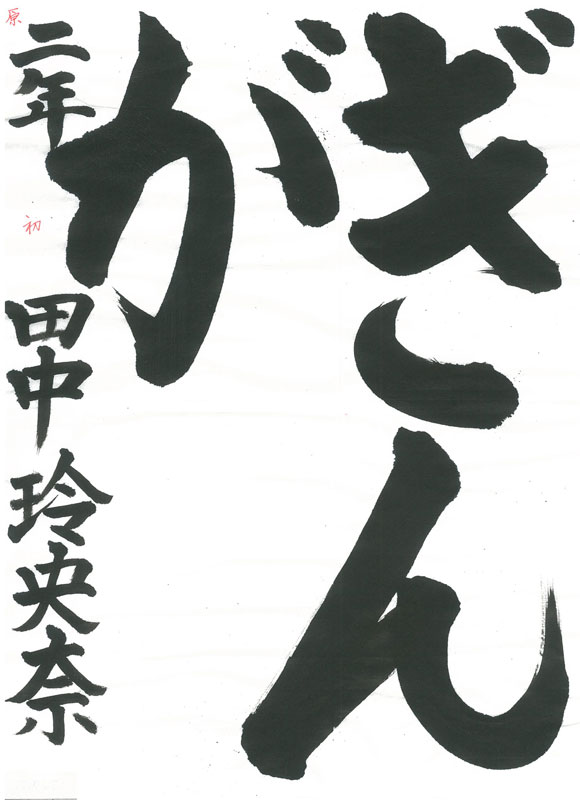 ぎん
が
二年 田中 玲央奈
原
初